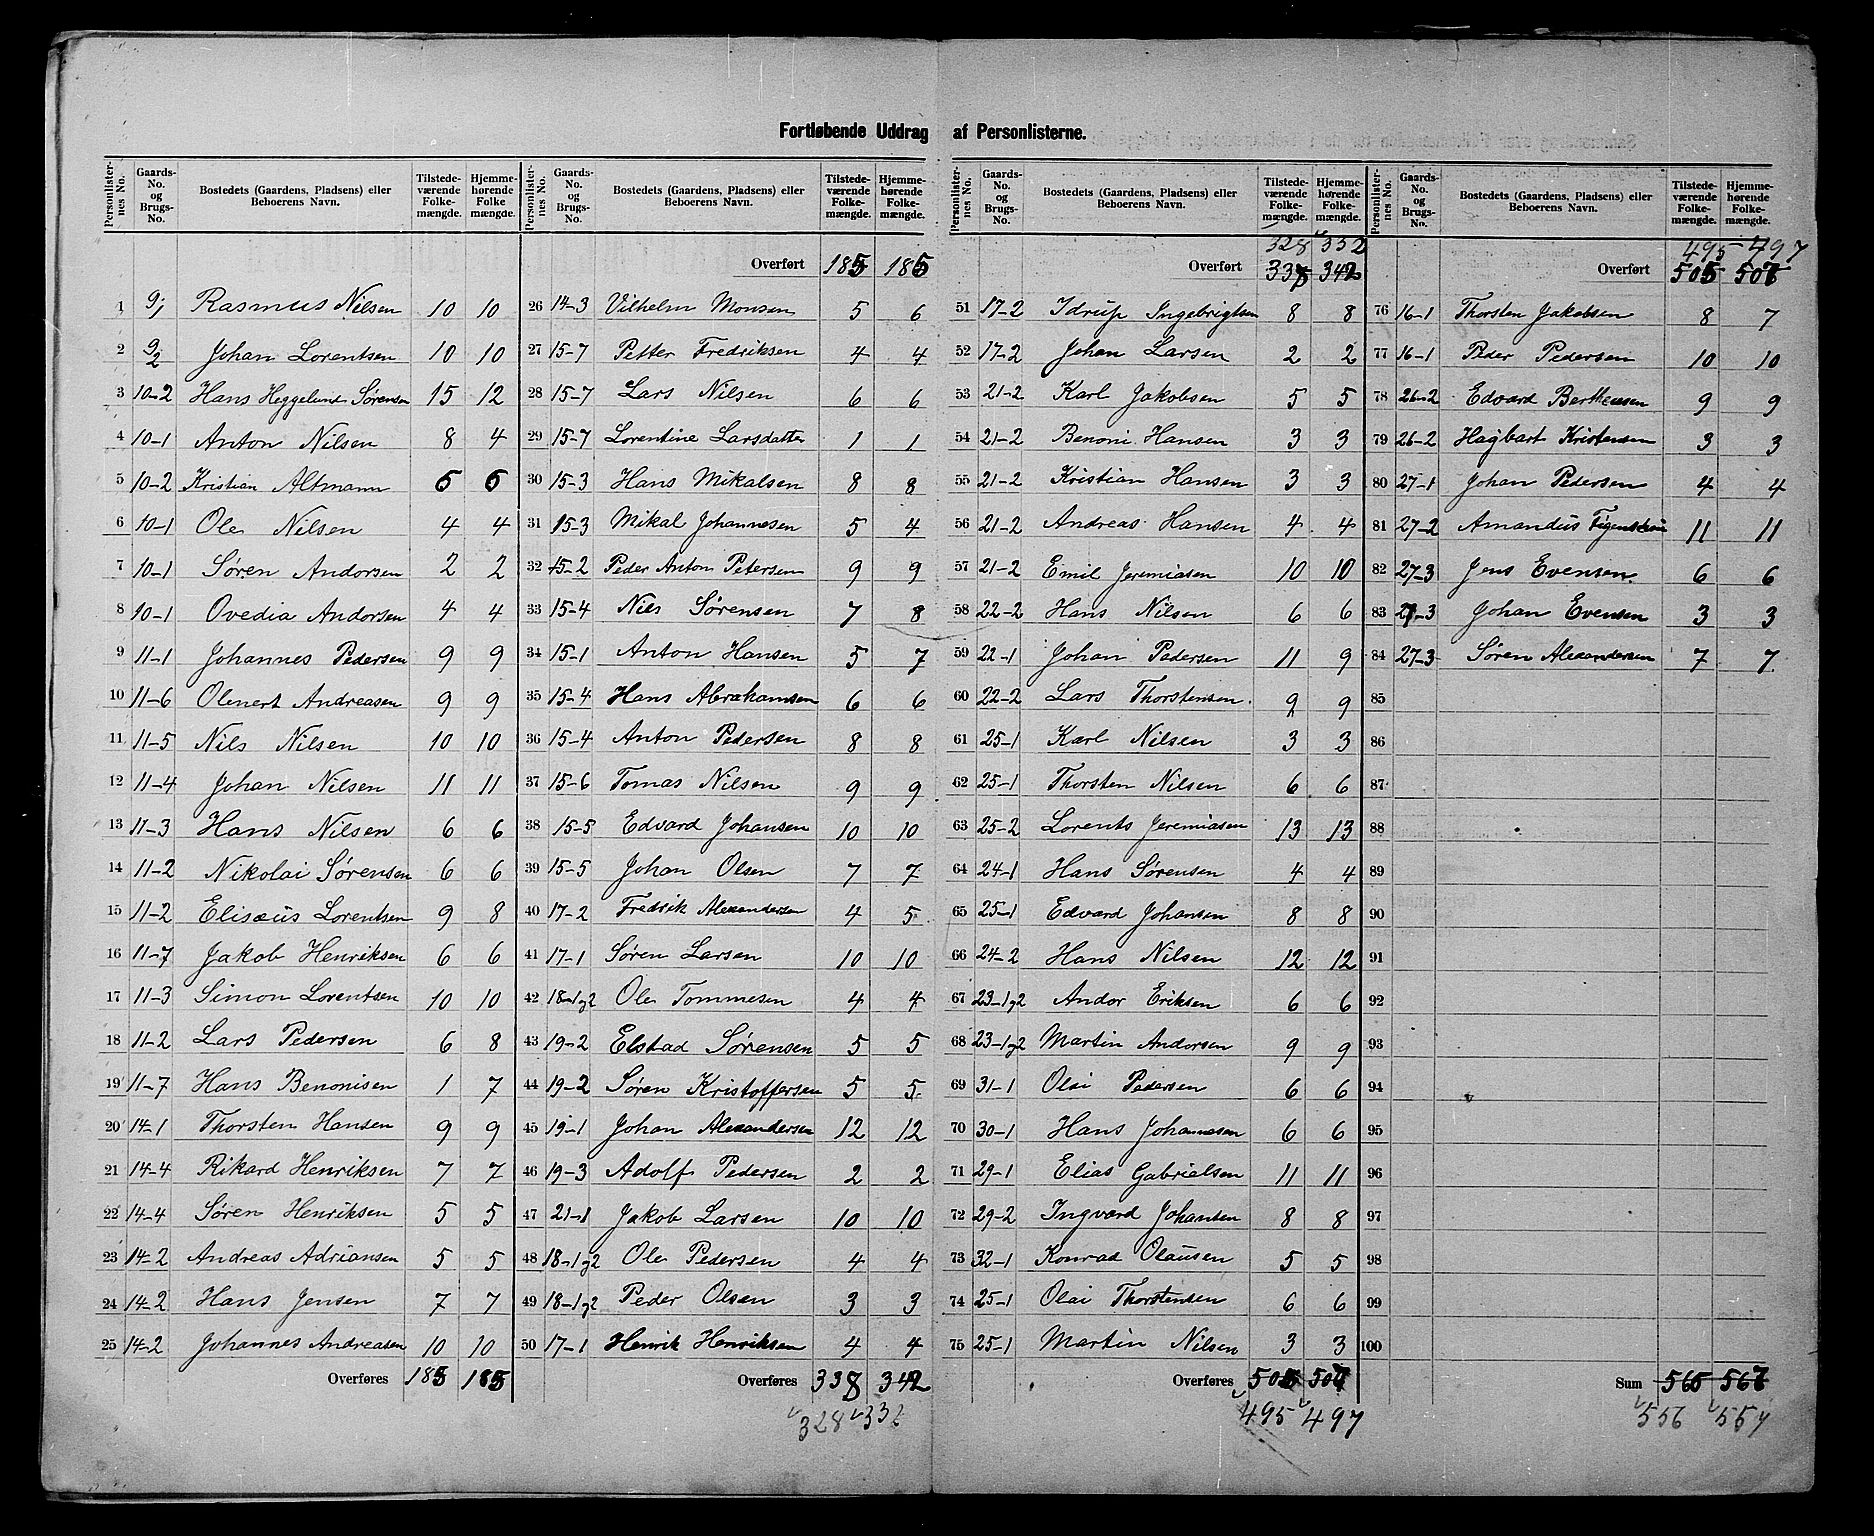 Fortløbende Uddrag af Personlisterne.
Personlister-nes No. Gaards-No. og Brugs-No. Bostedets (Gaardens, Pladsens) eller Beboerens Navn. Tilstede-værende Folke-mængde. Hjemme-hørende Folke-mængde.
1 9/1 Rasmus Nilsen 10 10
2 9/2 Johan Lorentsen 10 10
3 10-2 Hans Heggelund Sørensen 15 12
4 10-1 Anton Nilsen 8 4
5 10-2 Kristian Altmann 5 5
6 10-1 Ole Nilsen 4 4
7 10-1 Søren Andorsen 2 2
8 10-1 Ovedia Andorsen 4 4
9 11-1 Johannes Pedersen 9 9
10 11-6 Olenert Andreasen 9 9
11 11-5 Nils Nilsen 10 10
12 11-4 Johan Nilsen 11 11
13 11-3 Hans Nilsen 6 6
14 11-2 Nikolai Sørensen 6 6
15 11-2 Elisæus Lorentsen 9 8
16 11-7 Jakob Henriksen 6 6
17 11-3 Simon Lorentsen 10 10
18 11-2 Lars Pedersen 6 8
19 11-7 Hans Benonisen 1 7
20 14-1 Thorsten Hansen 9 9
21 14-4 Rikard Henriksen 7 7
22 14-4 Søren Henriksen 5 5
23 14-2 Andreas Adriansen 5 5
24 14-2 Hans Jensen 7 7
25 14-2 Johannes Andreasen 10 10
Overføres 185 185
Personlister-nes No. Gaards-No. og Brugs-No. Bostedets (Gaardens, Pladsens) eller Beboerens Navn. Tilstede-værende Folke-mængde. Hjemme-hørende Folke-mængde.
Overført 185 185
26 14-3 Vilhelm Monsen 5 6
27 15-7 Petter Fredriksen 4 4
28 15-7 Lars Nilsen 6 6
29 15-7 Lorentine Larsdatter 1 1
30 15-3 Hans Mikalsen 8 8
31 15-3 Mikal Johannesen 5 4
32 15-2 Peder Anton Petersen 9 9
33 15-4 Nils Sørensen 7 8
34 15-1 Anton Hansen 5 7
35 15-4 Hans Abrahamsen 6 6
36 15-4 Anton Pedersen 8 8
37 15-6 Tomas Nilsen 9 9
38 15-5 Edvard Johansen 10 10
39 15-5 Johan Olsen 7 7
40 17-2 Fredrik Alexandersen 4 5
41 17-1 Søren Larsen 10 10
42 18-1g2 Ole Tommesen 4 4
43 19-2 Elstad Sørensen 5 5
44 19-2 Søren Kristoffersen 5 5
45 19-1 Johan Alexandersen 12 12
46 19-3 Adolf Pedersen 2 2
47 21-1 Jakob Larsen 10 10
48 18-1g2 Ole Pedersen 4 4
49 18-1g2 Peder Olsen 3 3
50 17-1 Henrik Henriksen 4 4
Overføres 338 342
328 332
Personlister-nes No. Gaards-No. og Brugs-No. Bostedets (Gaardens, Pladsens) eller Beboerens Navn. Tilstede-værende Folke-mængde. Hjemme-hørende Folke-mængde.
328 332
Overført 338 342
51 17-2 Idrup Ingebrigtsen 8 8
52 17-2 Johan Larsen 2 2
53 21-2 Karl Jakobsen 5 5
54 21-2 Benoni Hansen 3 3
55 21-2 Kristian Hansen 3 3
56 21-2 Andreas Hansen 4 4
57 21-2 Emil Jeremiasen 10 10
58 22-2 Hans Nilsen 6 6
59 22-1 Johan Pedersen 11 9
60 22-2 Lars Thorstensen 9 9
61 25-1 Karl Nilsen 3 3
62 25-1 Thorsten Nilsen 6 6
63 25-2 Lorents Jeremiasen 13 13
64 24-1 Hans Sørensen 4 4
65 25-1 Edvard Johansen 8 8
66 24-2 Hans Nilsen 12 12
67 23-1g2 Andor Eriksen 6 6
68 23-1g2 Martin Andorsen 9 9
69 31-1 Olai Pedersen 6 6
70 30-1 Hans Johannesen 6 6
71 29-1 Elias Gabrielsen 11 11
72 29-2 Ingvard Johansen 8 8
73 32-1 Konrad Olausen 5 5
74 25-1 Olai Thorstensen 6 6
75 25-1 Martin Nilsen 3 3
Overføres 505 507
495 497
Personlister-nes No. Gaards-No. og Brugs-No. Bostedets (Gaardens, Pladsens) eller Beboerens Navn. Tilstede-værende Folke-mængde. Hjemme-hørende Folke-mængde.
495 497
Overført 505 507
76 16-1 Thorsten Jakobsen 8 7
77 16-1 Peder Pedersen 10 10
78 26-2 Edvard Bertheusen 9 9
79 26-2 Hagbart Kristensen 3 3
80 27-1 Johan Pedersen 4 4
81 27-2 Amandus Figenschou 11 11
82 27-3 Jens Evensen 6 6
83 27-3 Johan Evensen 3 3
84 27-3 Søren Alexandersen 7 7
85
86
87
88
89
90
91
92
93
94
95
96
97
98
99
100
Sum 565 567
556 557